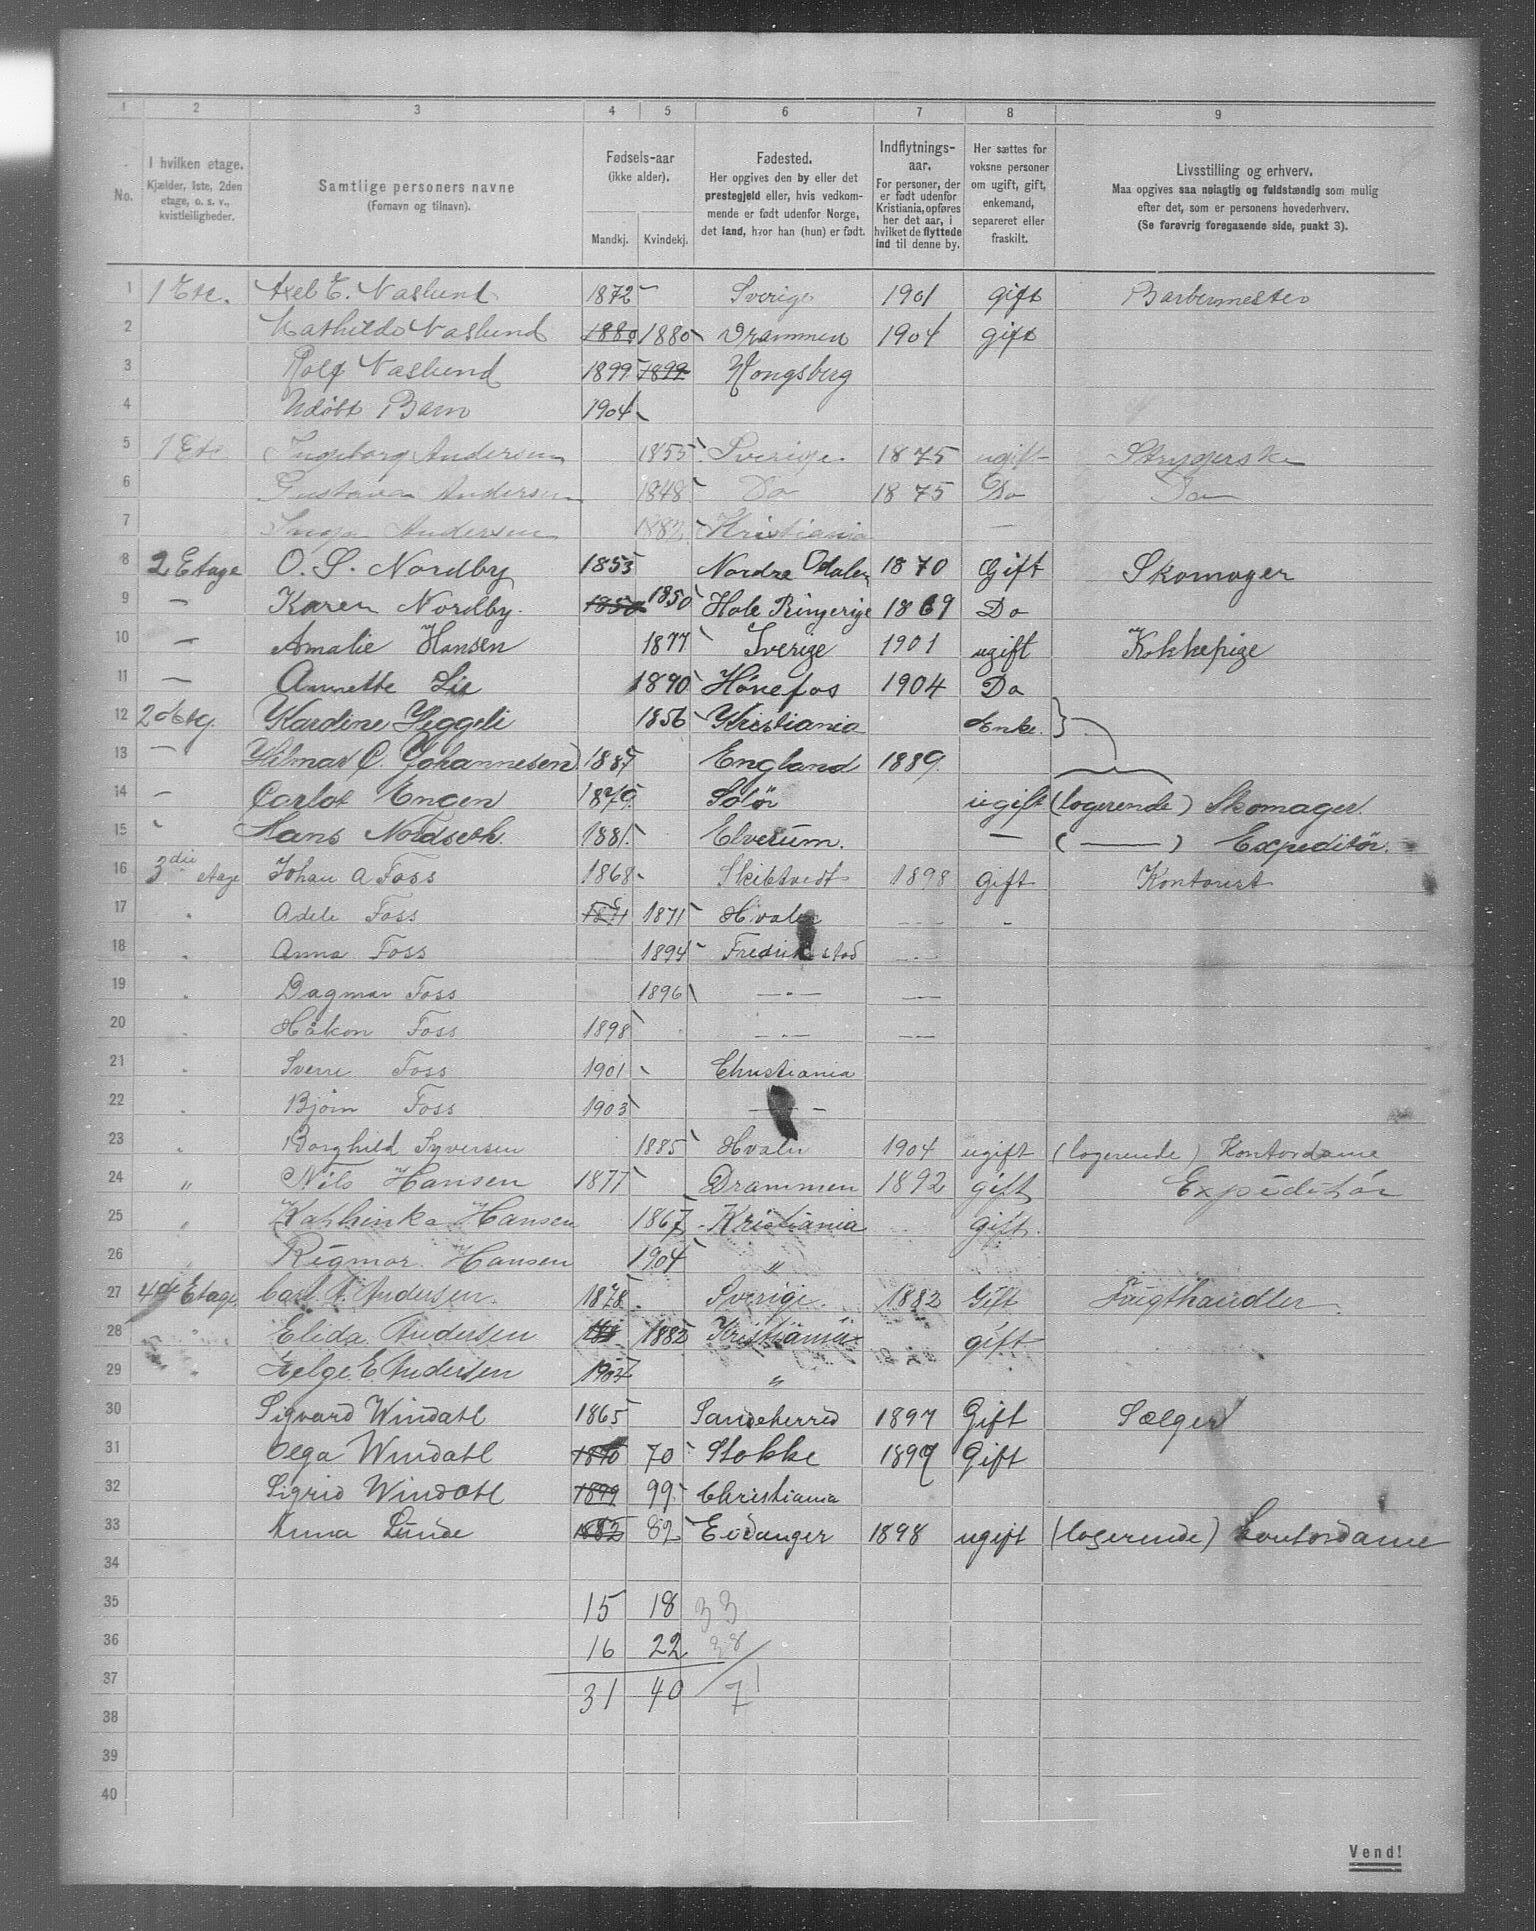 1 2 3 4 5 6 7 8 9
No.
I hvilken etage.
Kjælder, 1ste, 2den
etage, o. s. v.,
kvistleiligheder.
Samtlige personers navne
(Fornavn og tilnavn).
Fødsels-aar
(ikke alder).
Mandkj. Kvindekj.
Fødested.
Her opgives den by eller det
prestegjeld eller, hvis vedkom-
mende er født udenfor Norge,
det land, hvor han (hun) er født.
Indflytnings-
aar.
For personer, der
er født udenfor
Kristiania, opføres
her det aar, i
hvilket de flyttede
ind til denne by.
Her sættes for
voksne personer
om ugift, gift,
enkemand,
separeret eller
fraskilt.
Livsstilling og erhverv.
Maa opgives saa nøiagtig og fuldstændig som mulig
efter det, som er personens hovederhverv.
(Se forøvrig foregaaende side, punkt 3).
1 1 Etc. Axel E. Naslund 1872 Sverige 1901 gift Barbermester
2 Mathilde Naslund 1880 1880 Drammen 1904 gift
3 Rolf Naslund 1899 1899 Kongsberg
4 Udøbt Barn 1904
5 1 Etc Ingeborg Andersen 1855 Sverige 1875 ugift Strygerske
6 Gustava Andersen 1848 Do 1875 Do Do
7 Andersen Kristiania —
8 2 Etage O. S. Nordby 1853 Nordre Odalen 1870 Gift Skomager
9 — Karen Nordby. 1850 1850 Hole Ringerige 1869 Do
10 — Amalie Hansen 1877 Sverige 1901 ugift Kokkepige
11 — Annette Lie 1890 Hønefos 1904 Do
12 2d Etg. Kardine Heggeli 1856 Kristiania Enke.
13 — Hilmar C. Johannesen 1887 England 1889.
14 — Carlot Engen 1879 Solør ugift (logerende) Skomager.
15 Hans Nordseth. 1881. Elverum. — ( — ) Expeditør.
16 3die etage Johan A Foss 1868 Skibtvedt 1898 gift Kontorist
17 " Adele Foss 1871 1871 Hvaler — —
18 " Anna Foss 1894 Fredrikstad —
19 " Dagmar Foss 1896 — " — —
20 " Håkon Foss 1898 — " — —
21 " Sverre Foss 1901 Christiania
22 " Bjørn Foss 1903 — —
23 " Borghild Syversen 1885 Hvaler 1904 ugift (logerende) Kontordame
24 " Nils Hansen 1877 Drammen 1892 gift Expeditør
25 " Kathinka Hansen 1867 Kristiania gift.
26 " Rigmor Hansen 1904 "
27 4de Etage Carl A. Andersen. 1878. Sverige. 1882 Gift Frugthandler
28 " Elida Andersen 1882 Kristiania gift
29 " Helge E. Andersen 1904 "
30 Sigvard Windahl 1865 Sandeherred 1897 Gift Sælger
31 Olga Windahl 1870 70 Stokke 1897 Gift
32 Sigrid Windahl 1899 99 Christiania
33 Anna Lunde 1882 82 Eidanger 1898 ugift (logerende) Kontordame
34
35 15 18 33
36 16 22 38
37 31 40 71
38
39
40
Vend!